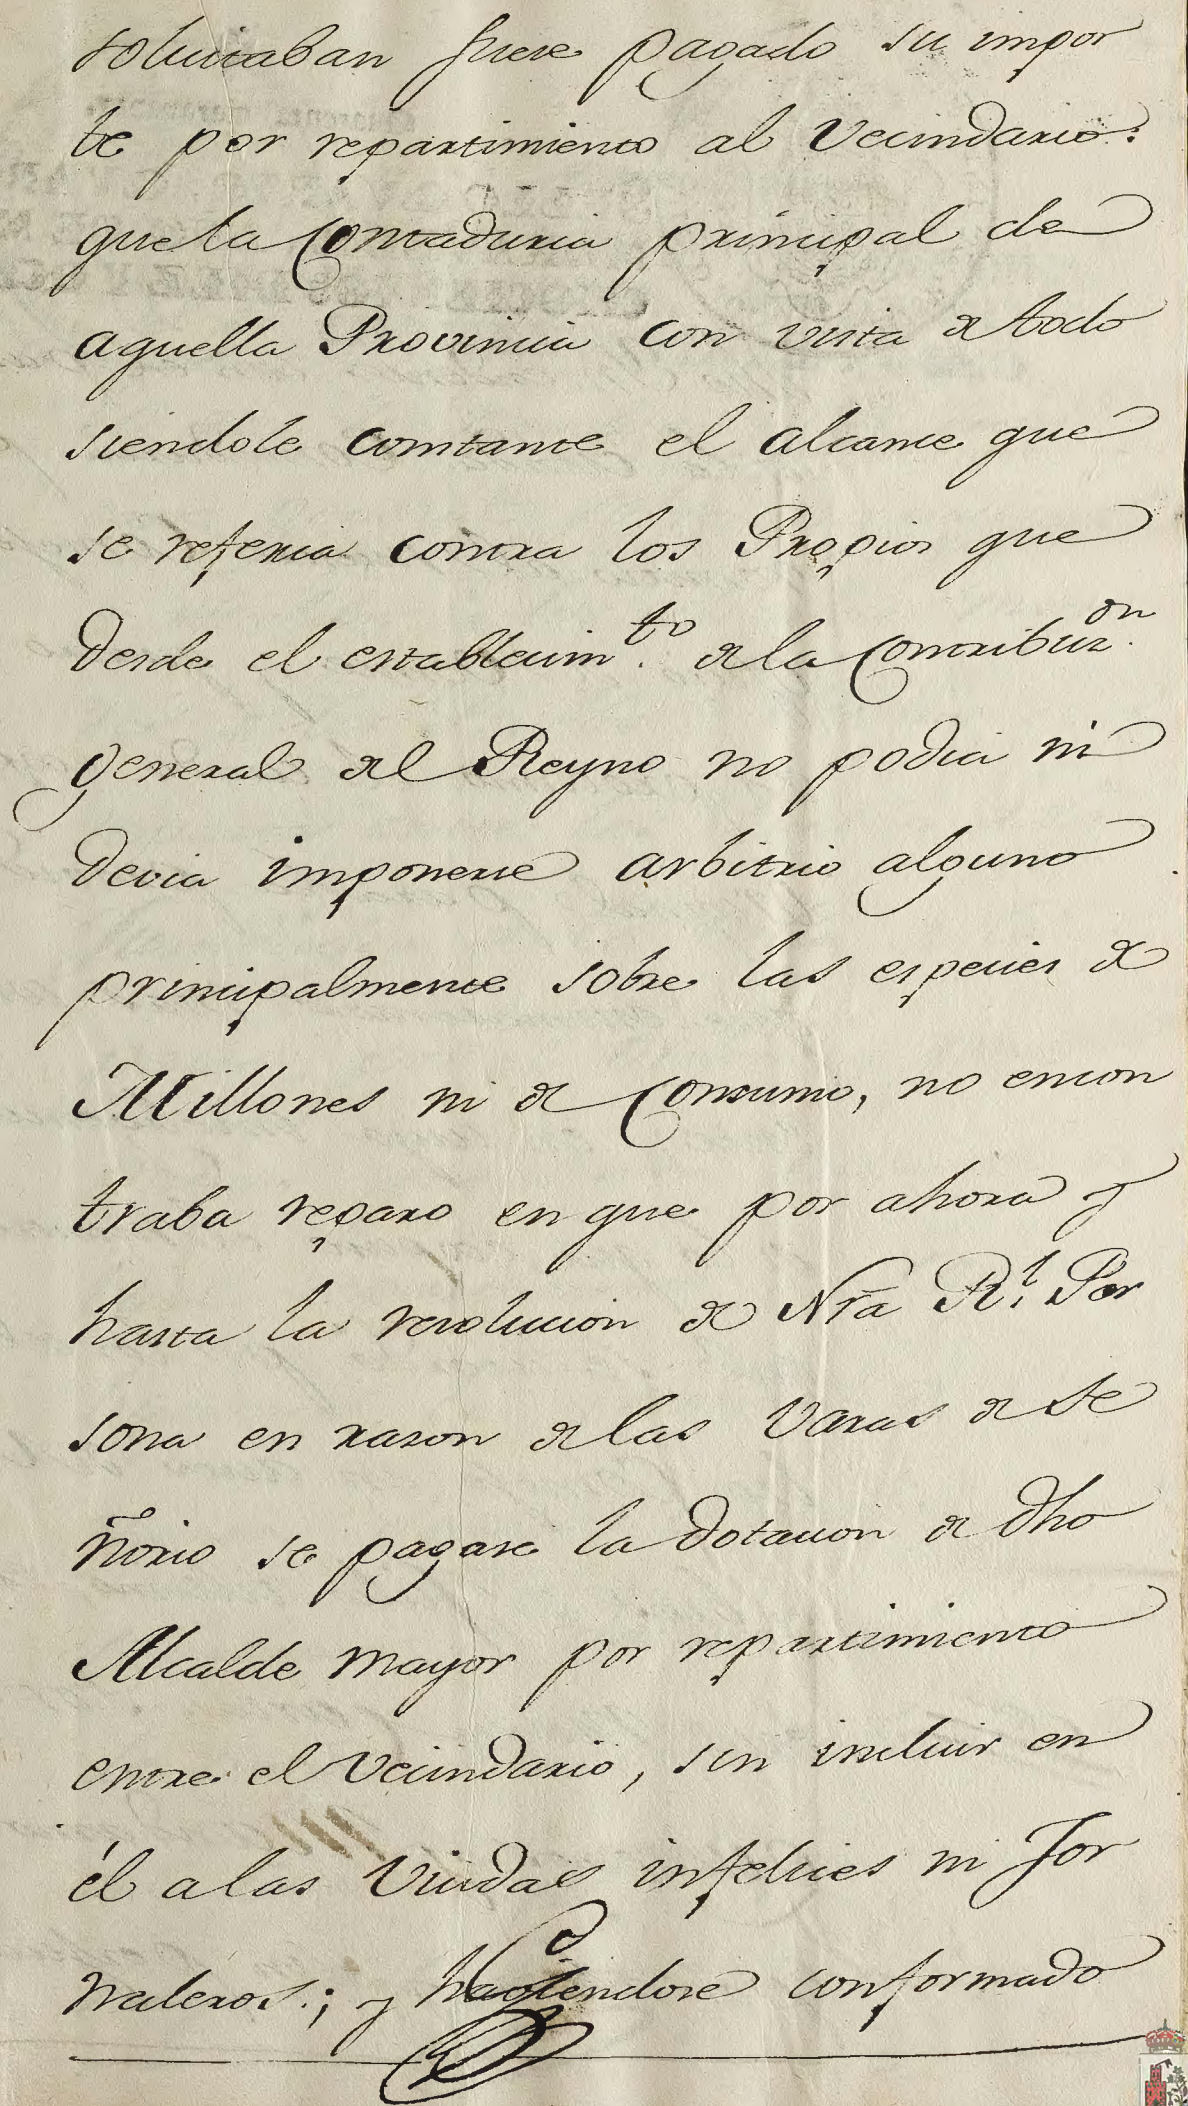 solicitaban fuese pagado su impor
te por repartimiento al Vecindario:
que la Contaduria principal de
aquella Provincia con vista de todo
siendole constante el alcance que
se referia contra los Propios que
desde el establecim.to de la Contribuz.on
general del Reyno no podia ni
devia imponerse arbitrio alguno
principalmente sobre las especies de
Millones ni de Consumo, no encon
traba reparo en que por ahora y
hasta la resolucion de Nra R.l Per
sona en razon de las Varas de Se
ñorio se pagase la dotacion de dho
Alcalde mayor por repartimiento
entre el Vecindario, sin incluir en
él a las Viudas infelices ni Jor
naleros.; y haviendose conformado